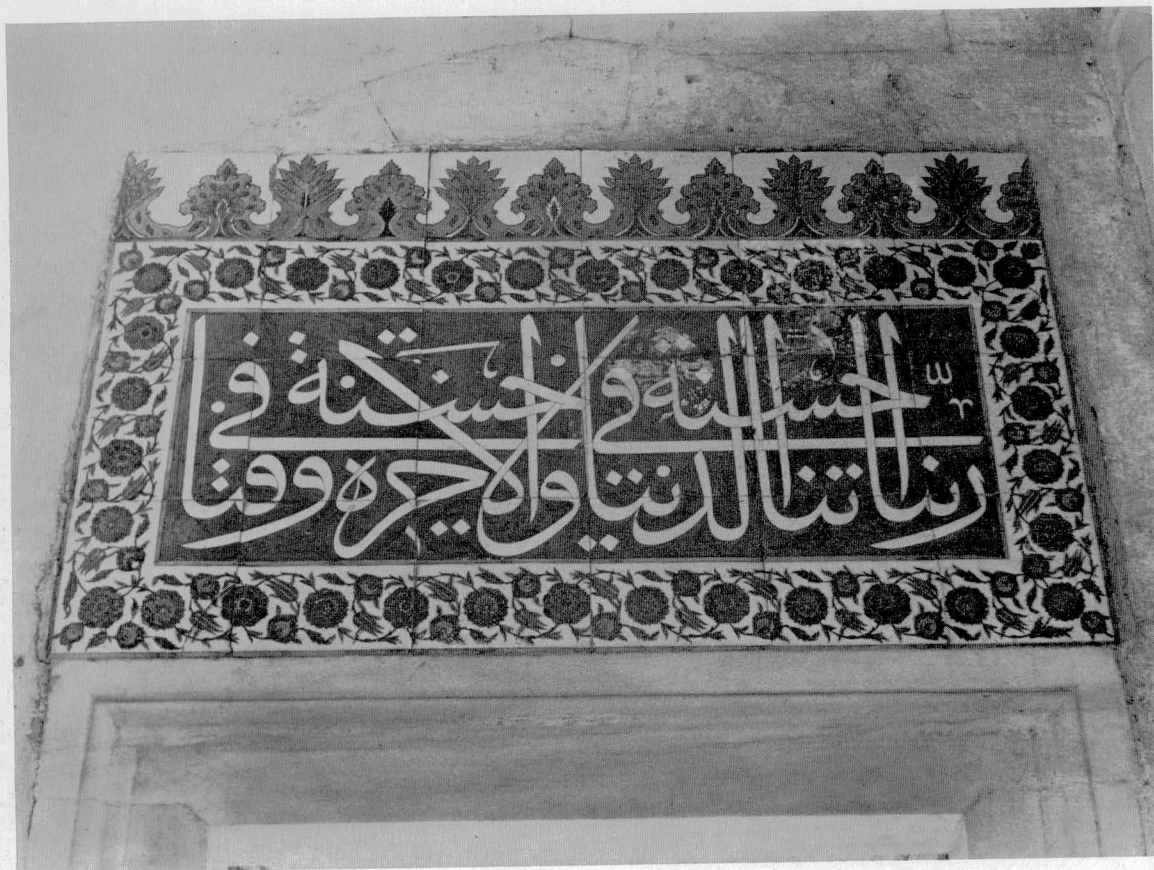 ربنا اتنا في الدنيا حسنه وفي الاخره حسنة وقنا